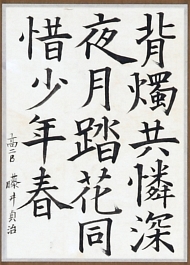 背燭共憐深
夜月踏花同
惜少年春
高二E 藤井貞治